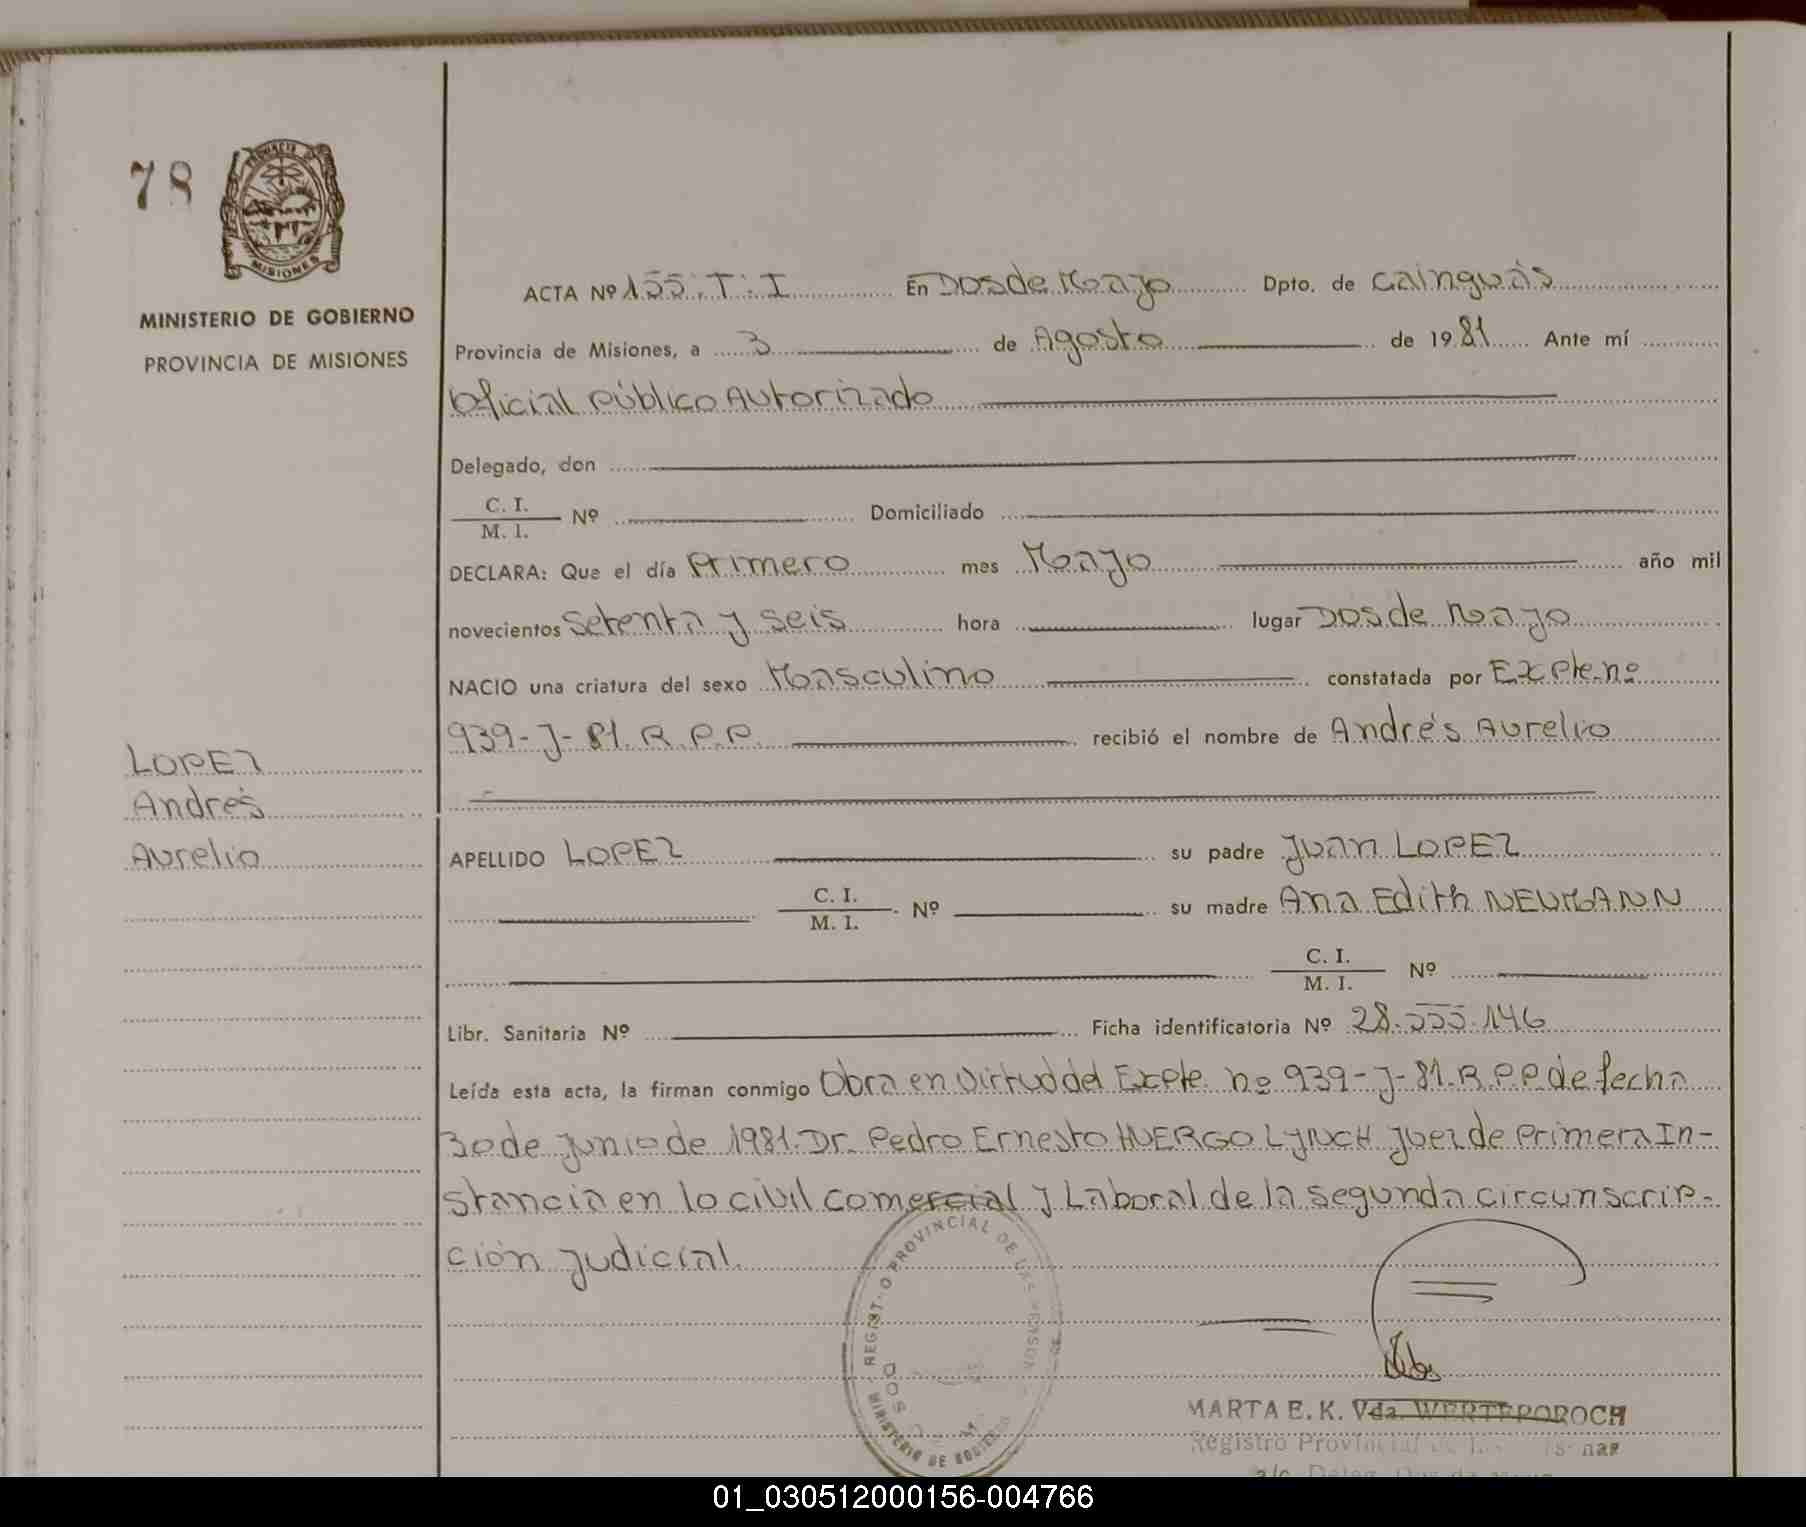 78
PROVINCIA DE
MISIONES
MINISTERIO DE GOBIERNO
PROVINCIA DE MISIONES
LOPEZ
Andrés
Aurelio
ACTA Nº 155. T. I En Dos de Mayo Dpto. de Cainguás
Provincia de Misiones, a 3 de Agosto de 1981 Ante mí
Oficial Público Autorizado
Delegado, don
C. I.
M. I. Nº Domiciliado
DECLARA: Que el día Primero mes Mayo año mil
novecientos setenta y seis hora lugar Dos de Mayo
NACIO una criatura del sexo Masculino constatada por Expte. nº
939-J-81. R. P. P. recibió el nombre de Andrés Aurelio
APELLIDO LOPEZ su padre Juan LOPEZ
C. I.
M. I. Nº su madre Ana Edith NEUMANN
C. I.
M. I. Nº
Libr. Sanitaria Nº Ficha identificatoria Nº 28.555.146
Leída esta acta, la firman conmigo Obra en virtud del Expte. nº 939-J-81. R.P.P de fecha
30 de Junio de 1981. Dr. Pedro Ernesto HUERGO LYNCH Juez de Primera In-
stancia en lo civil comercial y Laboral de la segunda circunscrip-
ción judicial.
REGISTRO PROVINCIAL DE LAS PERSONAS
MINISTERIO DE GOBIERNO
DOS
MARTA E. K. Vda. WERTEPOROCH
Registro Provincial de las Personas
01_030512000156-004766